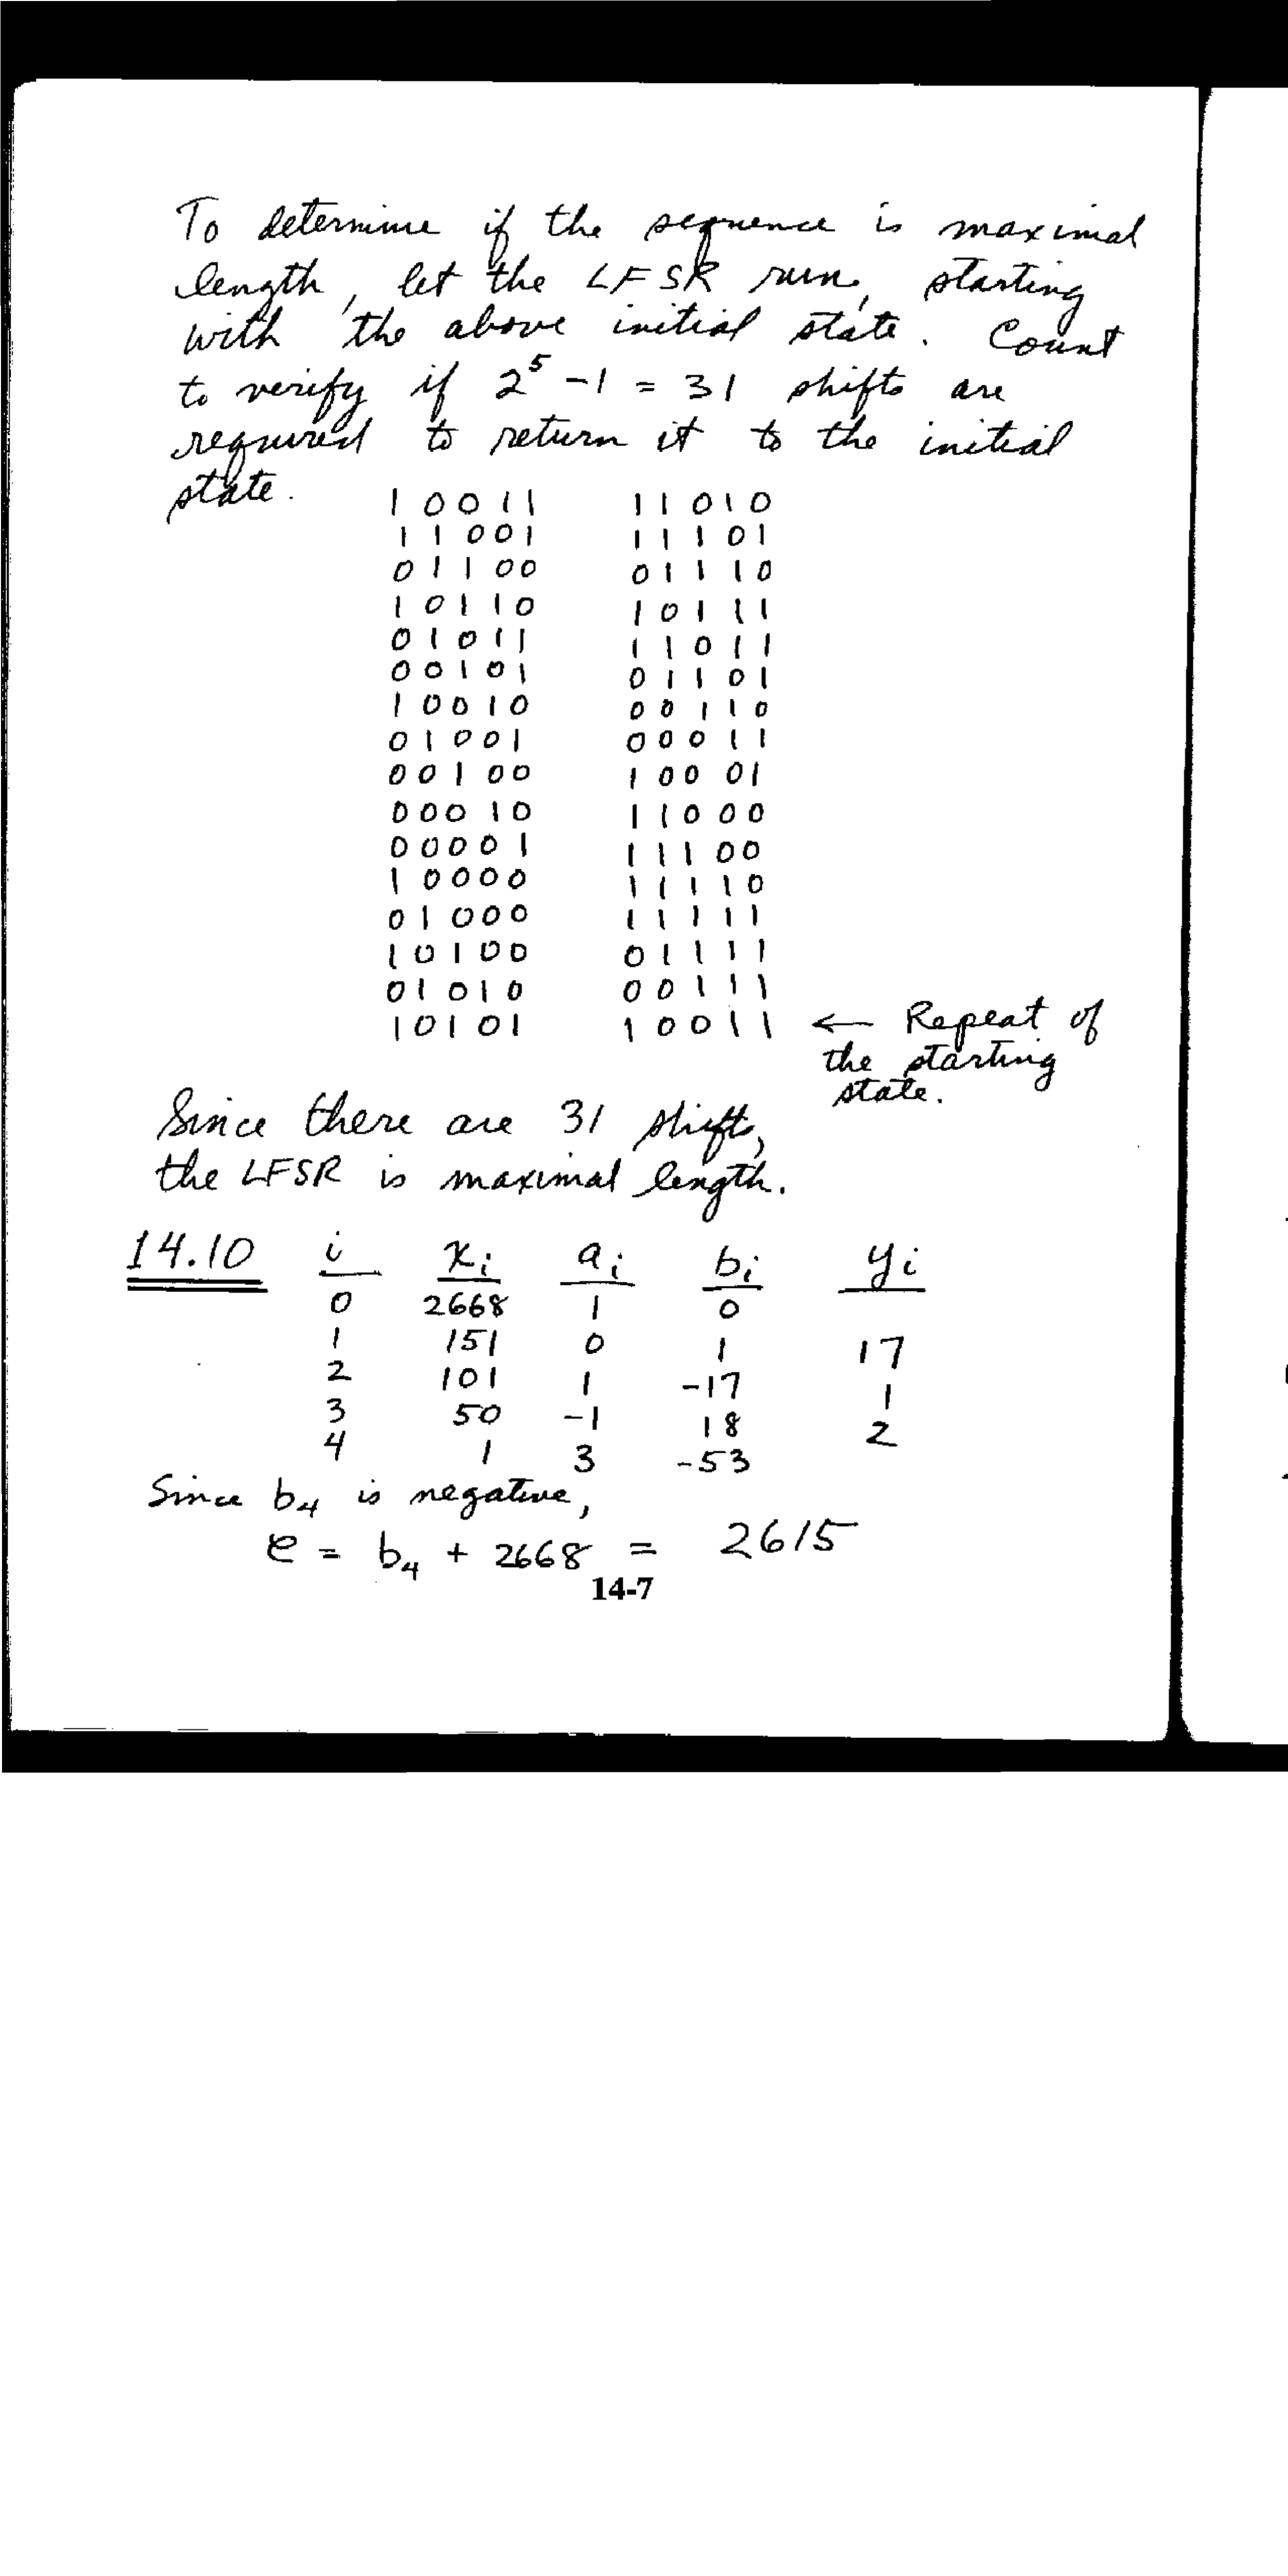 To determine if the sequence is maximal
length, let the LFSR run, starting
with the above initial state. Count
to verify if 2^5 - 1 = 31 shifts are
required to return it to the initial
state.
1 0 0 1 1    1 1 0 1 0
1 1 0 0 1    1 1 1 0 1
0 1 1 0 0    0 1 1 1 0
1 0 1 1 0    1 0 1 1 1
0 1 0 1 1    1 1 0 1 1
0 0 1 0 1    0 1 1 0 1
1 0 0 1 0    0 0 1 1 0
0 1 0 0 1    0 0 0 1 1
0 0 1 0 0    1 0 0 0 1
0 0 0 1 0    1 1 0 0 0
0 0 0 0 1    1 1 1 0 0
1 0 0 0 0    1 1 1 1 0
0 1 0 0 0    1 1 1 1 1
1 0 1 0 0    0 1 1 1 1
0 1 0 1 0    0 0 1 1 1
1 0 1 0 1    1 0 0 1 1 ← Repeat of
the starting
state.
Since there are 31 shifts,
the LFSR is maximal length.
14.10 i x_i a_i b_i y_i
0 2668 1 0
1 151 0 1 17
2 101 1 -17 1
3 50 -1 18 2
4 1 3 -53
Since b_4 is negative,
e = b_4 + 2668 = 2615
14-7